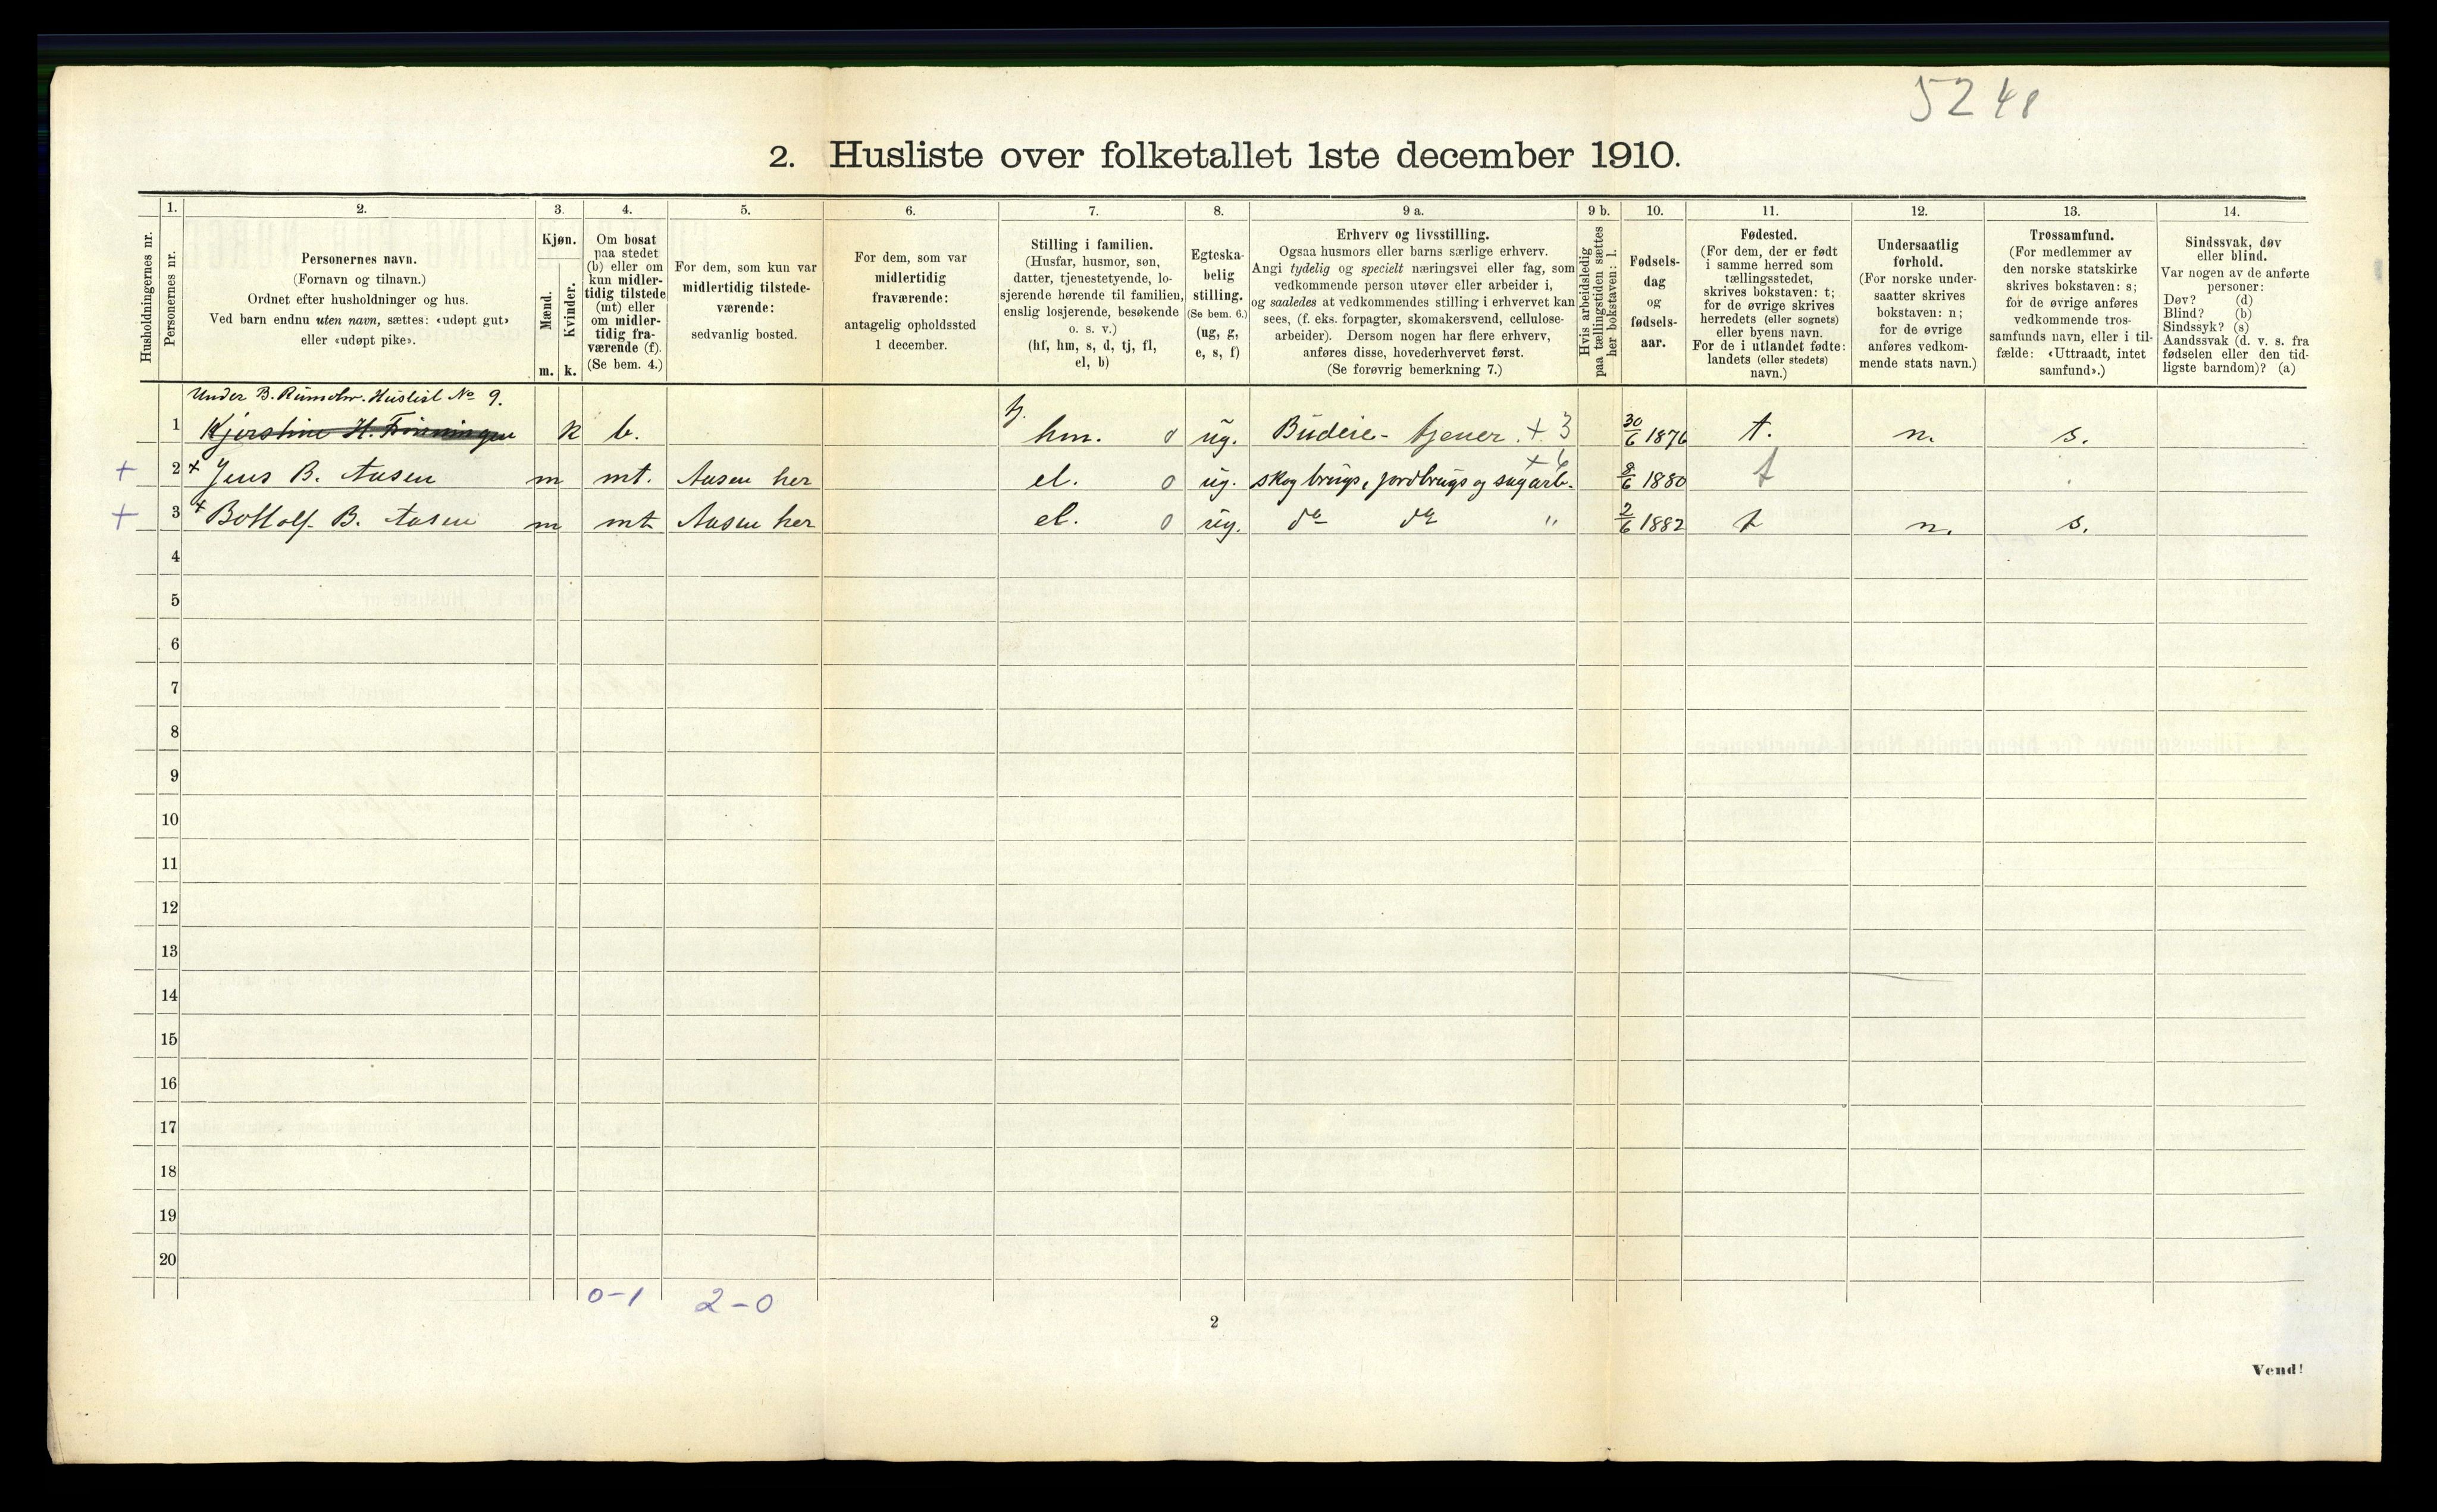 5248
2. Husliste over folketallet 1ste december 1910.
Husholdningernes nr.
1.
Personernes nr.
2.
Personernes navn.
(Fornavn og tilnavn.)
Ordnet efter husholdninger og hus.
Ved barn endnu uten navn, sættes: «udøpt gut»
eller «udøpt pike».
3.
Kjøn.
Mænd.
Kvinder.
m. k.
4.
Om bosat
paa stedet
(b) eller om
kun midler-
tidig tilstede
(mt) eller
om midler-
tidig fra-
værende (f).
(Se bem. 4.)
5.
For dem, som kun var
midlertidig tilstede-
værende:
sedvanlig bosted.
6.
For dem, som var
midlertidig
fraværende:
antagelig opholdssted
1 december.
7.
Stilling i familien.
(Husfar, husmor, søn,
datter, tjenestetyende, lo-
sjerende hørende til familien,
enslig losjerende, besøkende
o. s. v.)
(hf, hm, s, d, tj, fl,
el, b)
8.
Egteska-
belig
stilling.
(Se bem. 6.)
(ug, g,
e, s, f)
9 a.
Erhverv og livsstilling.
Ogsaa husmors eller barns særlige erhverv.
Angi tydelig og specielt næringsvei eller fag, som
vedkommende person utøver eller arbeider i,
og saaledes at vedkommendes stilling i erhvervet kan
sees, (f. eks. forpagter, skomakersvend, cellulose-
arbeider). Dersom nogen har flere erhverv,
anføres disse, hovederhvervet først.
(Se forøvrig bemerkning 7.)
9 b.
Hvis arbeidsledig
paa tællingstiden sættes
her bokstaven: l.
10.
Fødsels-
dag
og
fødsels-
aar.
11.
Fødested.
(For dem, der er født
i samme herred som
tællingsstedet,
skrives bokstaven: t;
for de øvrige skrives
herredets (eller sognets)
eller byens navn.
For de i utlandet fødte:
landets (eller stedets)
navn.)
12.
Undersaatlig
forhold.
(For norske under-
saatter skrives
bokstaven: n;
for de øvrige
anføres vedkom-
mende stats navn.)
13.
Trossamfund.
(For medlemmer av
den norske statskirke
skrives bokstaven: s;
for de øvrige anføres
vedkommende tros-
samfunds navn, eller i til-
fælde: «Uttraadt, intet
samfund».)
14.
Sindssvak, døv
eller blind.
Var nogen av de anførte
personer:
Døv? (d)
Blind? (b)
Sindssyk? (s)
Aandssvak (d. v. s. fra
fødselen eller den tid-
ligste barndom)? (a)
Under B. Husliste No 9.
1 Kjerstine H. k b. tj. hm. o ug. Budeie- tjener. + 3 30/6 1876 t. n. s.
+ 2 + Jens B. Aasen m mt. Aasen her el. o ug. skogbrugs, jordbrugs og sagarb. + 6 8/6 1880 t
+ 3 + Bottolf B. Aasen m mt Aasen her el. o ug. do do " 2/6 1882 t n. s.
4
5
6
7
8
9
10
11
12
13
14
15
16
17
18
19
20
0-1 2-0
2
Vend!